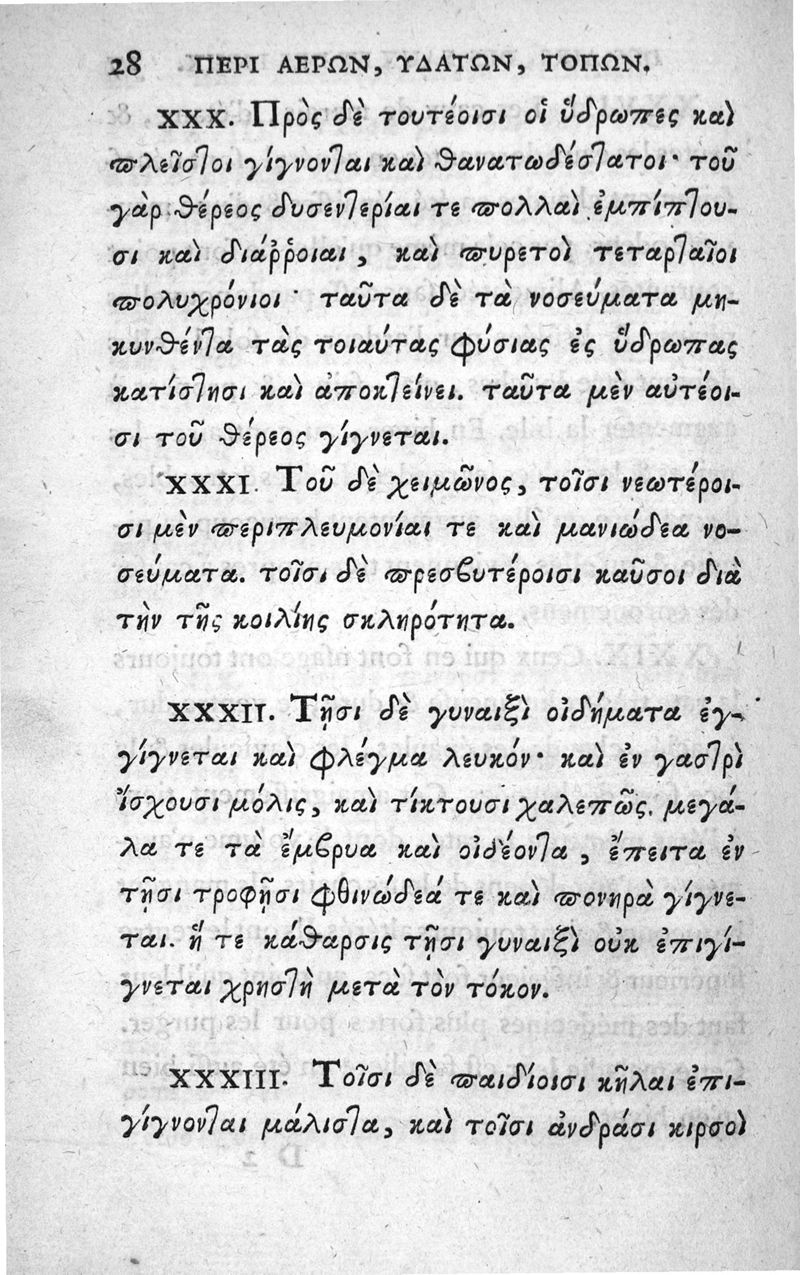 28 ΠΕΡΙ ΑΕΡΩΝ, ΥΔΑΤΩΝ, ΤΟΠΩΝ.
XXX. Πρὸς δὲ τουτέοισι οἱ ὕδρωπες καὶ
πλεῖστοι γίγνονται καὶ θανατωδέστατοι· τοῦ
γὰρ θέρεος δυσεντερίαι τε πολλαὶ ἐμπίπτου-
σι καὶ διάῤῥοιαι, καὶ πυρετοὶ τεταρταῖοι
πολυχρόνιοι· ταῦτα δὲ τὰ νοσεύματα μη-
κυνθέντα τὰς τοιαύτας φύσιας ἐς ὕδρωπας
κατίστησι καὶ ἀποκτείνει. ταῦτα μὲν αὐτέοι-
σι τοῦ θέρεος γίγνεται.
XXXI. Τοῦ δὲ χειμῶνος, τοῖσι νεωτέροι-
σι μὲν περιπλευμονίαι τε καὶ μανιώδεα νο-
σεύματα. τοῖσι δὲ πρεσβυτέροισι καῦσοι διὰ
τὴν τῆς κοιλίης σκληρότητα.
XXXII. Τῇσι δὲ γυναιξὶ οἰδήματα ἐγ-
γίγνεται καὶ φλέγμα λευκόν· καὶ ἐν γαστρὶ
ἴσχουσι μόλις, καὶ τίκτουσι χαλεπῶς. μεγά-
λα τε τὰ ἔμβρυα καὶ οἰδέοντα, ἔπειτα ἐν
τῇσι τροφῇσι φθινώδεά τε καὶ πονηρὰ γίγνε-
ται. ἥ τε κάθαρσις τῇσι γυναιξὶ οὐκ ἐπιγί-
γνεται χρηστὴ μετὰ τὸν τόκον.
XXXIII. Τοῖσι δὲ παιδίοισι κῆλαι ἐπι-
γίγνονται μάλιστα, καὶ τοῖσι ἀνδράσι κιρσοὶ